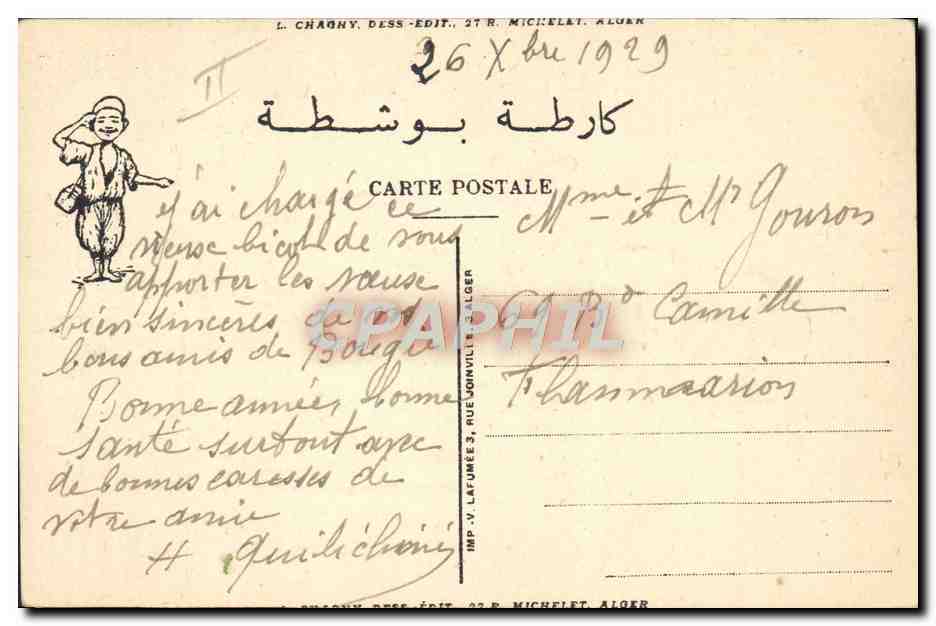 L. CHAGNY, DESS.-ÉDIT., 27 R. MICHELET, ALGER
II
26 Xbre 1929
كارطة بوشطة
CARTE POSTALE
j'ai chargé ce
vieux bicot de vous
apporter les vœux
bien sincères de nos
bons amis de Bougie
Bonne année, bonne
santé surtout avec
de bonnes caresses de
votre amie
H
Mme et Mr Gouron
69 Bd Camille
Flammarion
IMP. V. LAFUMÉE 3, RUE JOINVILLE, 3 ALGER
CPAPHIL
L. CHAGNY, DESS.-ÉDIT., 27 R. MICHELET, ALGER